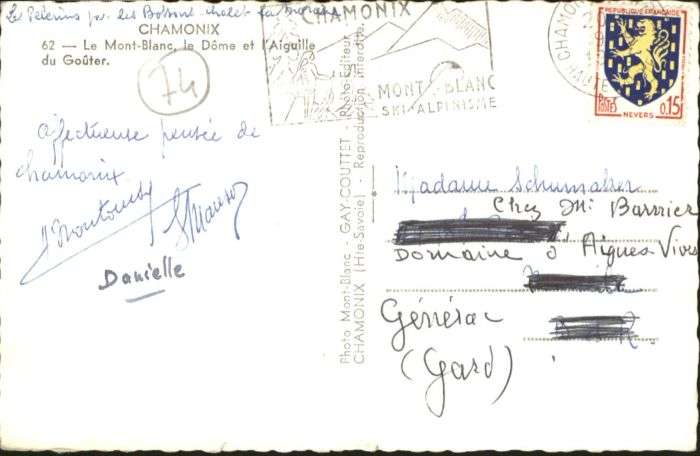 Les Pèlerins par les Bossons chalet
CHAMONIX
62 — Le Mont-Blanc, le Dôme et l'Aiguille
du Goûter.
74
Affectueuse pensée de
chamonix
Danielle
CHAMONIX
MONT-BLANC
SKI-ALPINISME
CHAMONIX
HAUTE
REPUBLIQUE FRANÇAISE
POSTES
0,15
NEVERS
Photo Mont-Blanc - GAY-COUTTET - Photo-Editeur
CHAMONIX (Hte-Savoie) - Reproduction interdite
Madame Schumaher
Chez Mr Barnier
Domaine d'Aigues Vives
Générac
(Gard)